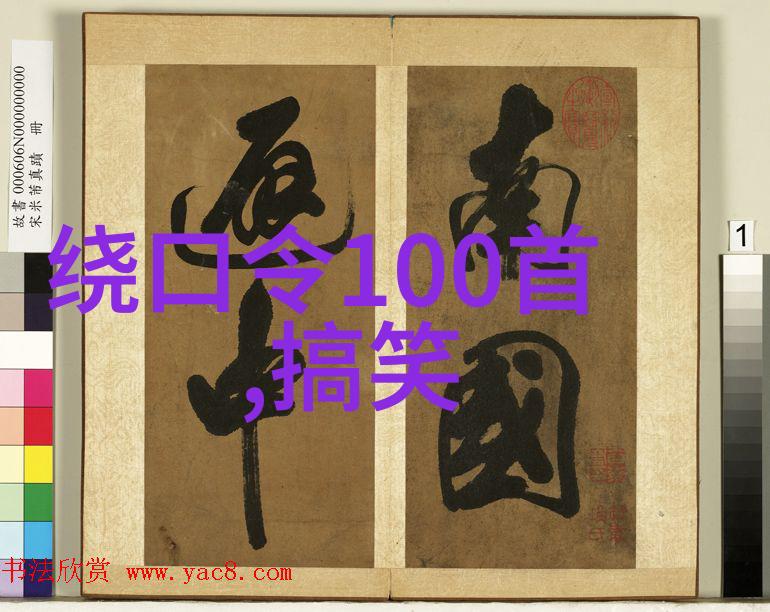 故書 000606N000000000
宋米芾真蹟 冊
南國
中
绕口令100首
,搞笑
1
书法欣赏 www.yac8.com